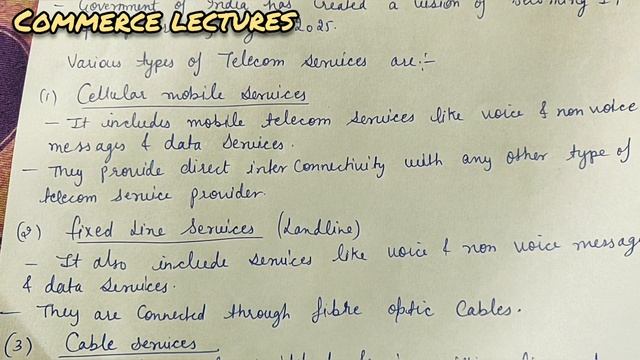 - Government of India has created a vision of
COMMERCE LECTURES
2025.
Various types of Telecom services are:-
(1) Cellular mobile services
- It includes mobile telecom services like voice & non voice
messages & data services.
- They provide direct inter connectivity with any other type of
telecom service provider.
(2) fixed line services (Landline)
- It also include services like voice & non voice message
& data services.
- They are connected through fibre optic cables.
(3) Cable services